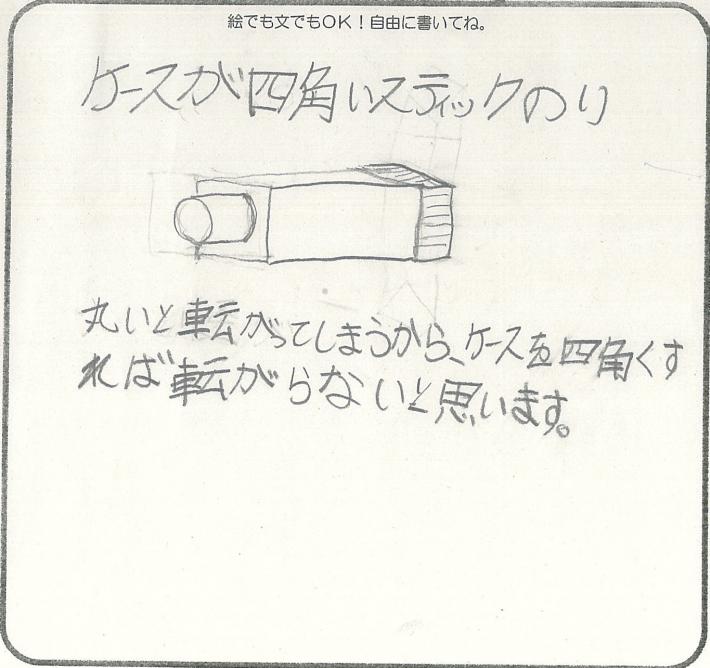 絵でも文でもOK！自由に書いてね。
ケースが四角いスティックのり
丸いと転がってしまうから、ケースを四角くす
れば転がらないと思います。